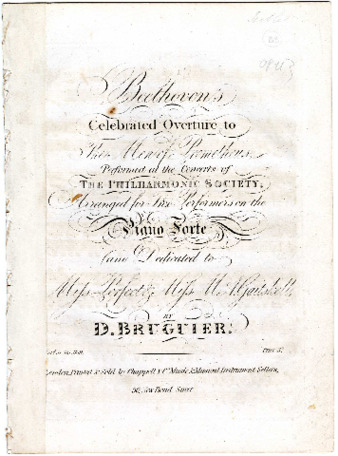 Beethoven's
Celebrated Overture to
The Men of Prometheus
Performed at the Concerts of
THE PHILHARMONIC SOCIETY,
Arranged for Two Performers on the
Piano Forte
and Dedicated to
Miss &, Miss M.
BY
D. BRUGUIER.
London, Printed & Sold by Chappell & Co. Music & Musical Instrument Sellers,
50, New Bond Street